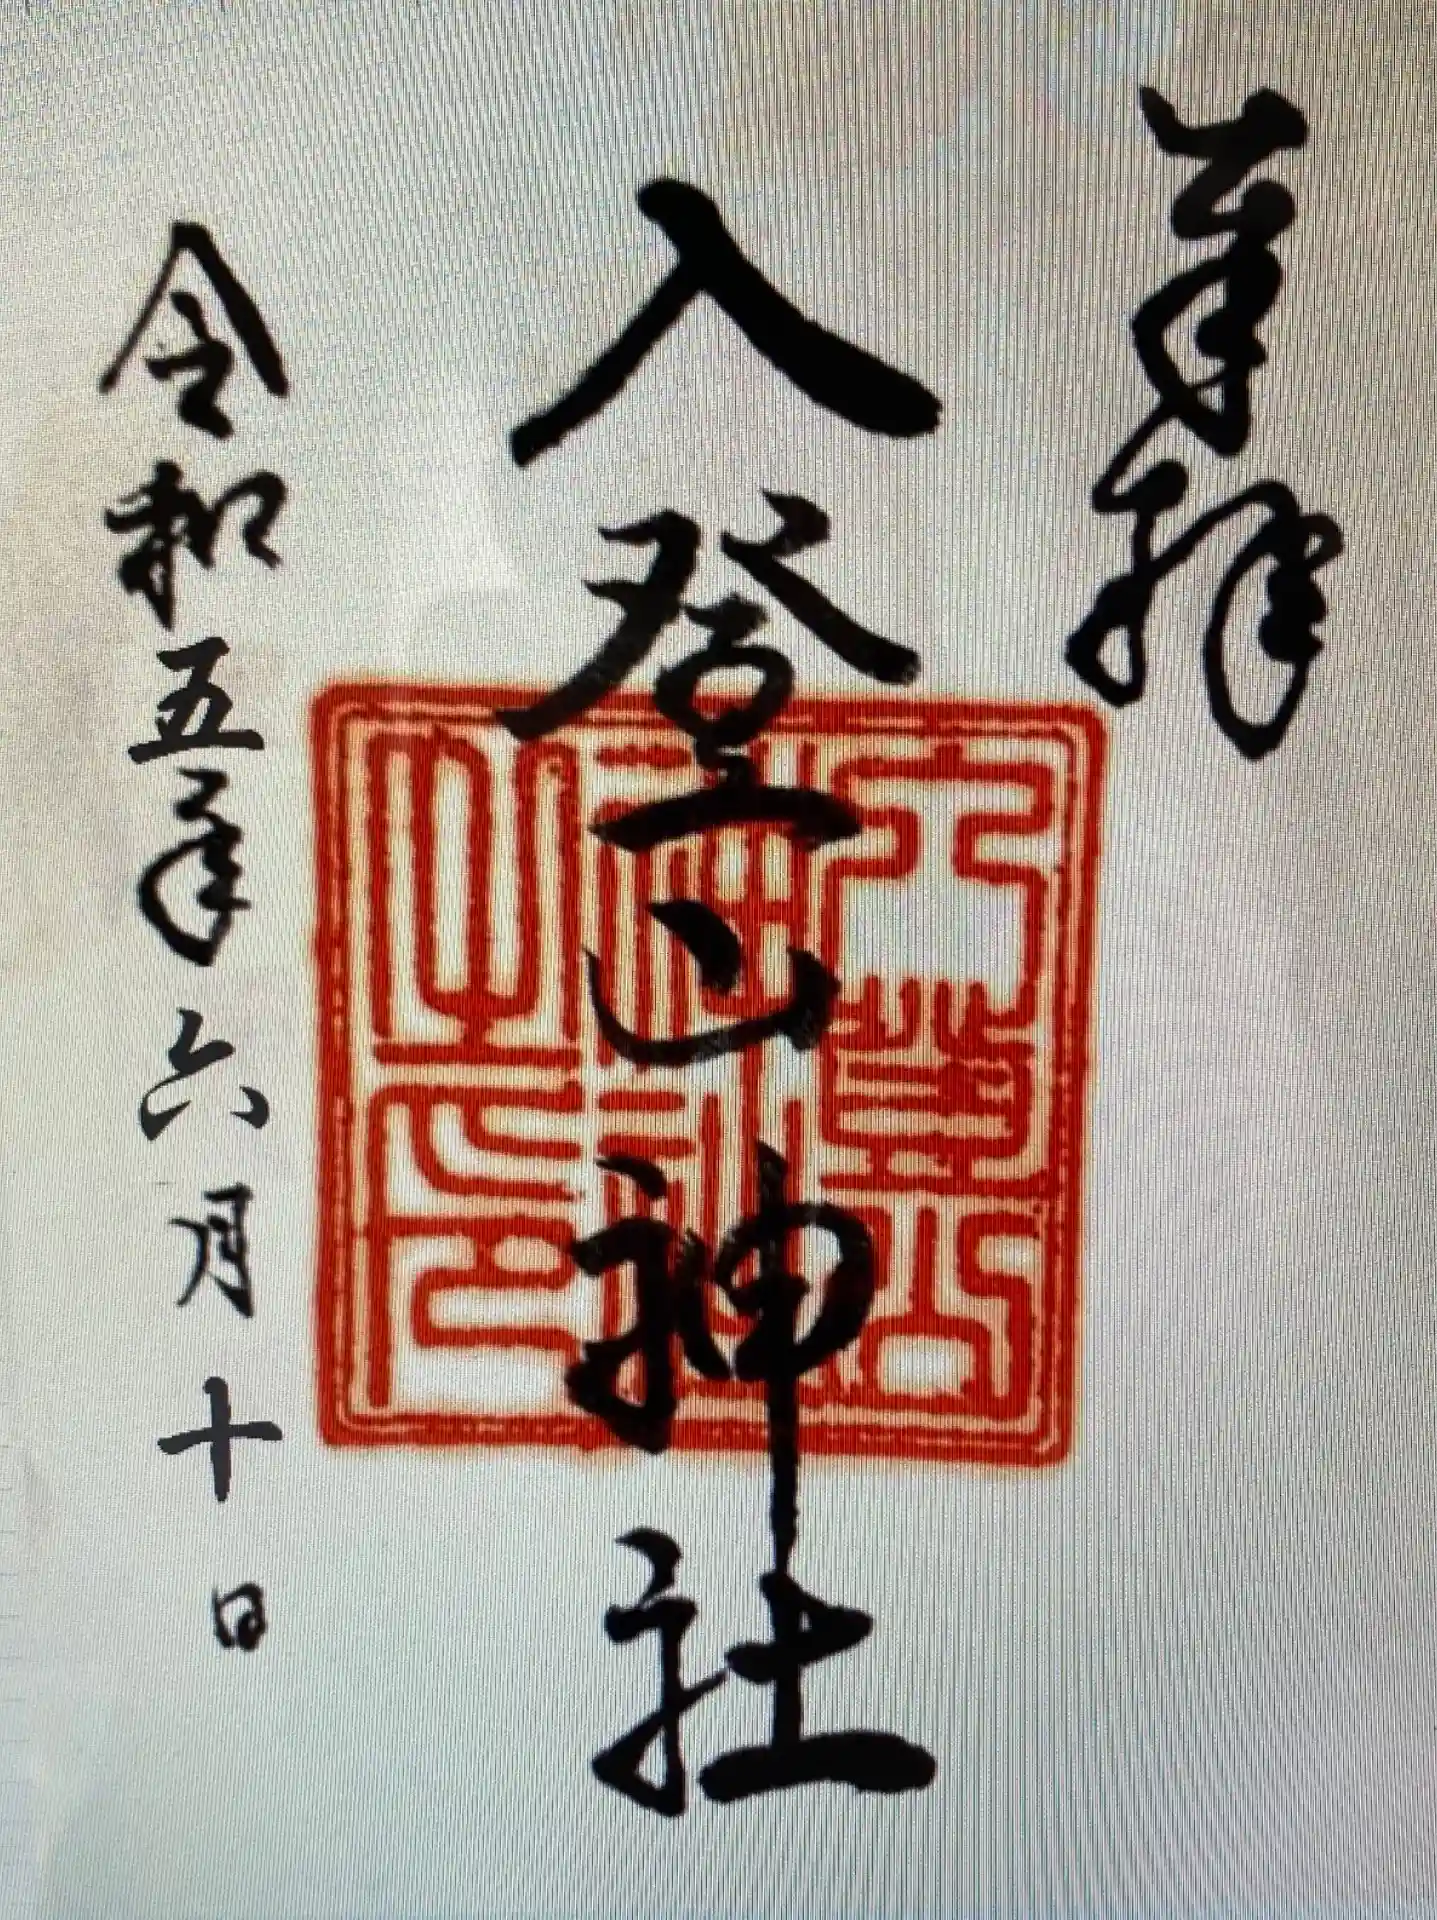 奉拝
入登山神社
令和五年六月十日